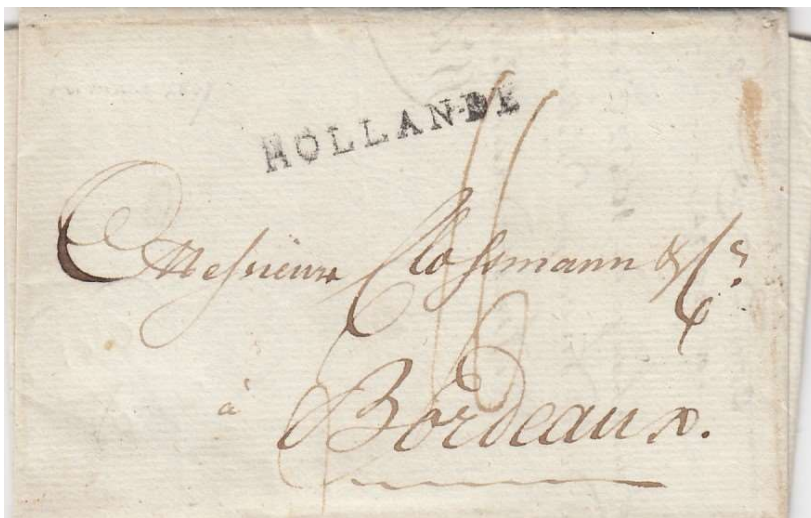 HOLLANDE
Messieurs Clossmann & Ce.
à Bordeaux.